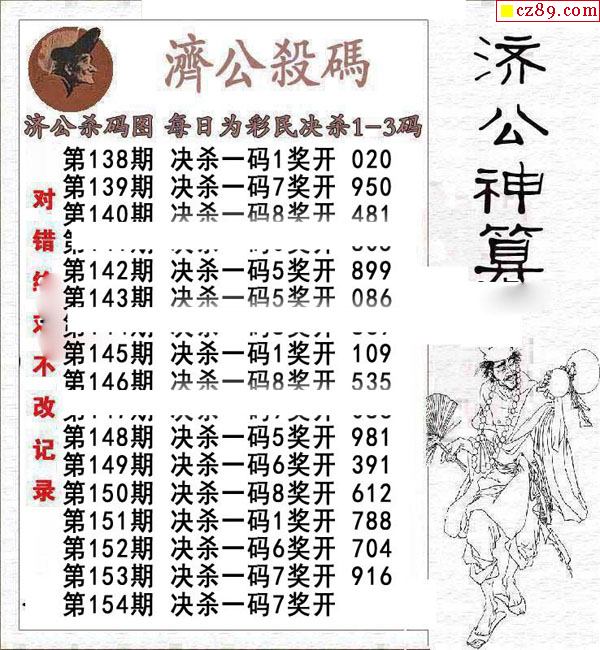 cz89.com
濟公殺碼
济公杀码图 每日为彩民决杀1-3码
第138期 决杀一码1奖开 020
第139期 决杀一码7奖开 950
第140期 决杀一码8奖开 481
第142期 决杀一码5奖开 899
第143期 决杀一码5奖开 086
第145期 决杀一码1奖开 109
第146期 决杀一码8奖开 535
第148期 决杀一码5奖开 981
第149期 决杀一码6奖开 391
第150期 决杀一码8奖开 612
第151期 决杀一码1奖开 788
第152期 决杀一码6奖开 704
第153期 决杀一码7奖开 916
第154期 决杀一码7奖开
对错
不改记录
济公神算